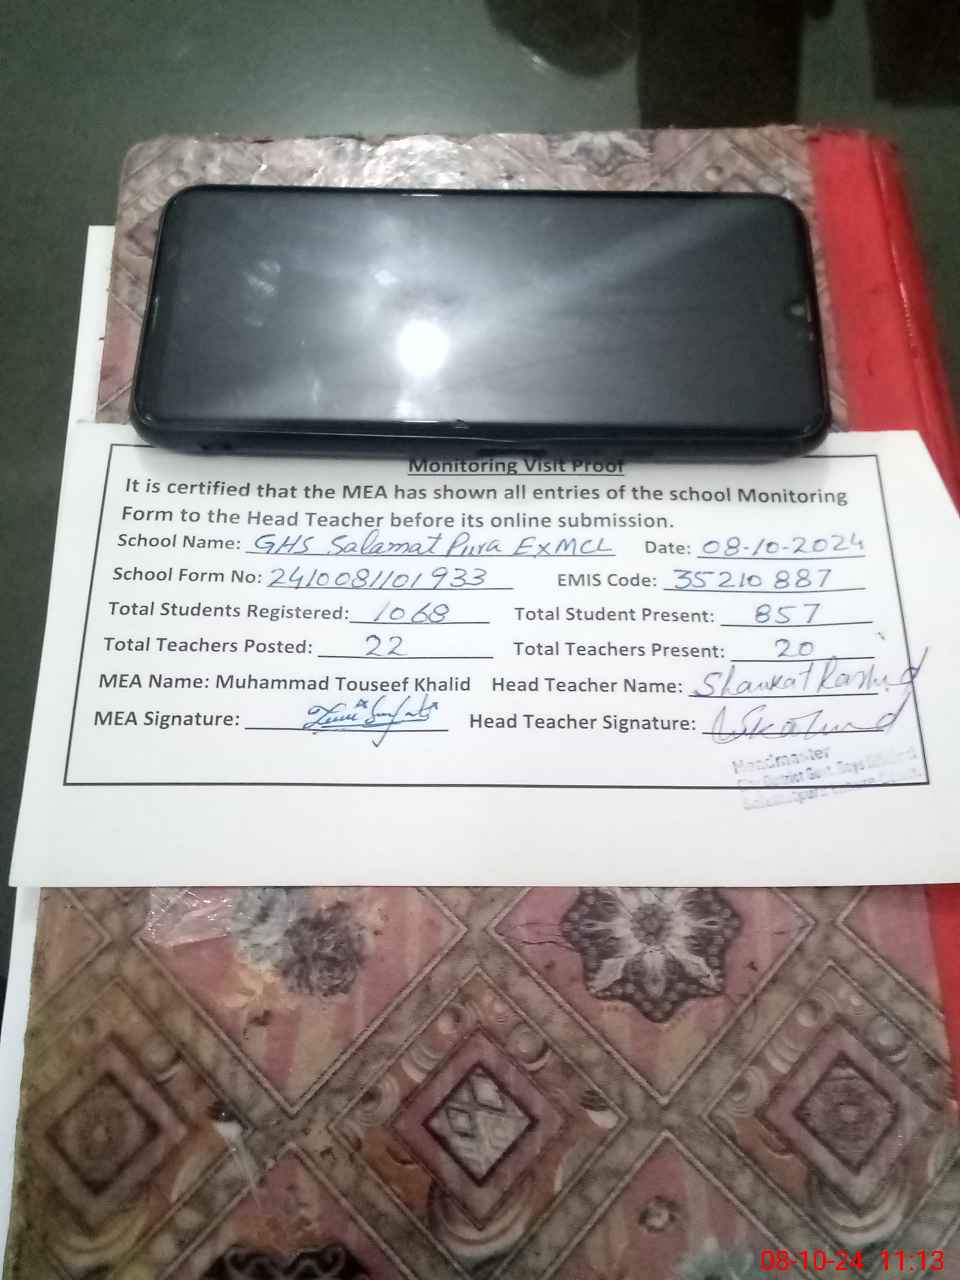 Monitoring Visit Proof
It is certified that the MEA has shown all entries of the school Monitoring
Form to the Head Teacher before its online submission.
School Name: GHS Salamat Pura ExMCL Date: 08-10-2024
School Form No: 2410081101933 EMIS Code: 35210887
Total Students Registered: 1068 Total Student Present: 857
Total Teachers Posted: 22 Total Teachers Present: 20
MEA Name: Muhammad Touseef Khalid Head Teacher Name: Shaukat Rashid
MEA Signature: Head Teacher Signature:
Headmaster
District Govt. Boys
08-10-24 11:13